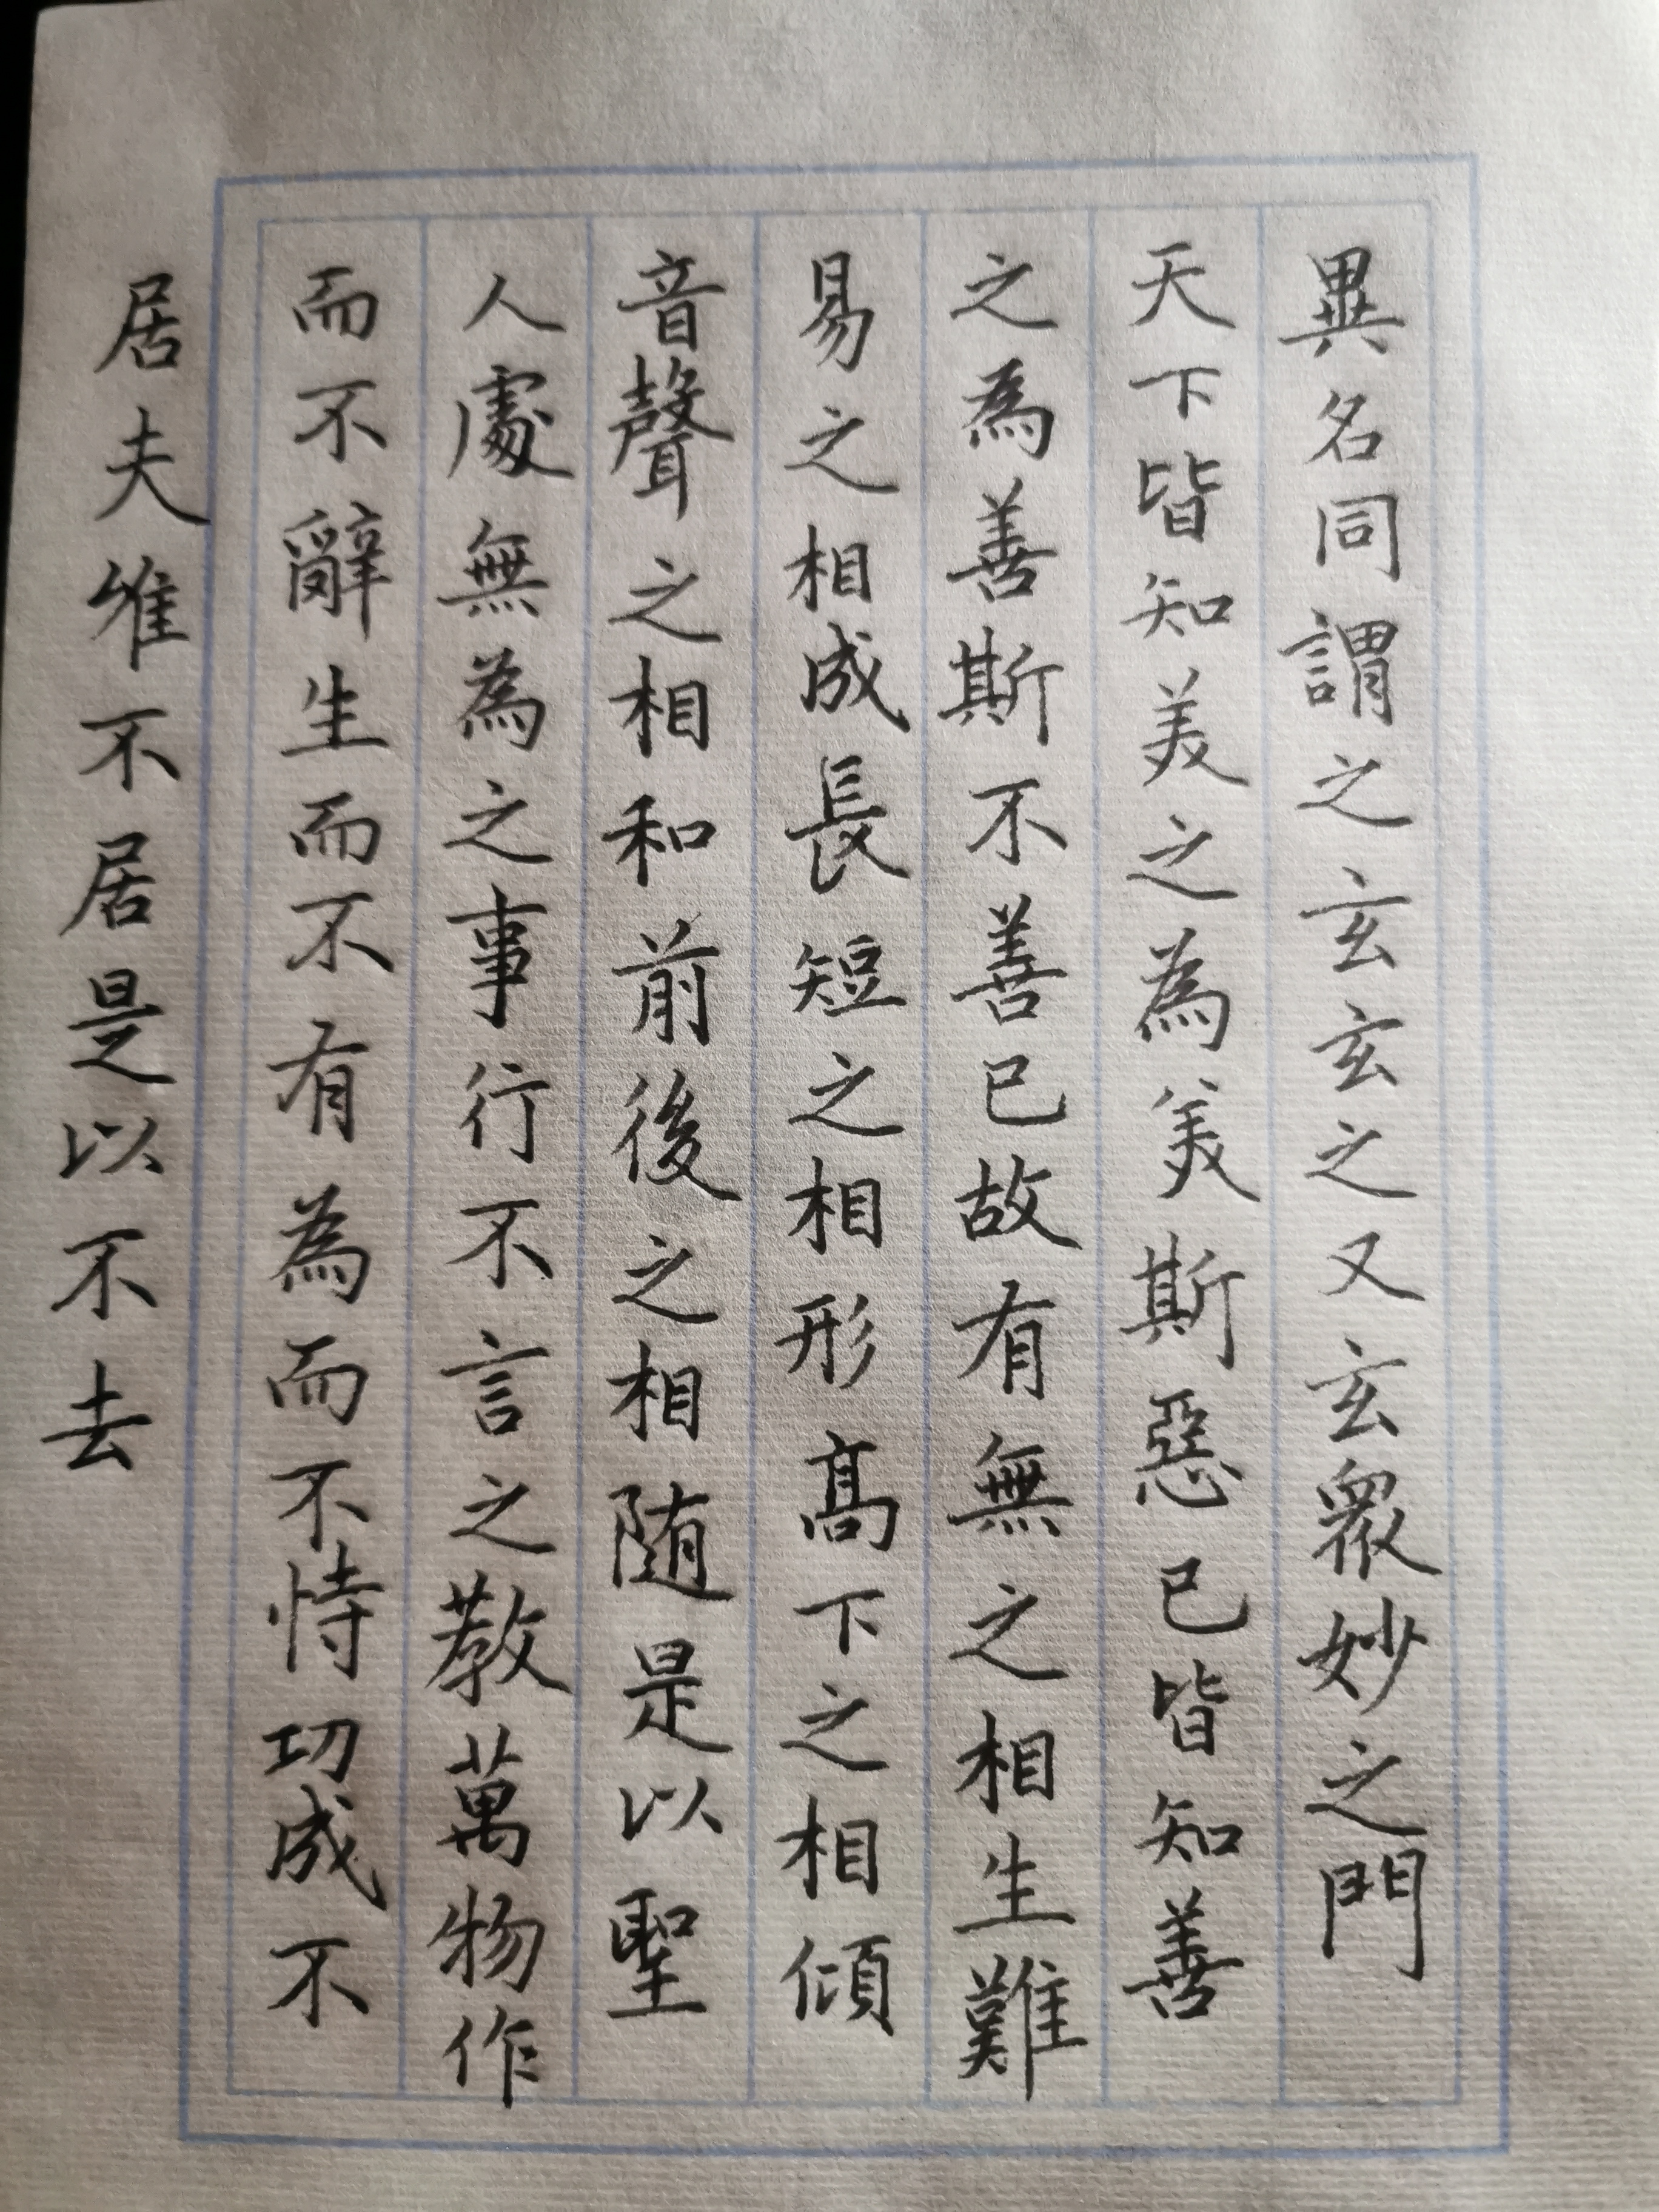 異名同謂之玄玄之又玄眾妙之門
天下皆知美之為美斯惡已皆知善
之為善斯不善已故有無之相生難
易之相成長短之相形高下之相傾
音聲之相和前後之相随是以聖
人處無為之事行不言之教萬物作
而不辭生而不有為而不恃功成不
居夫惟不居是以不去